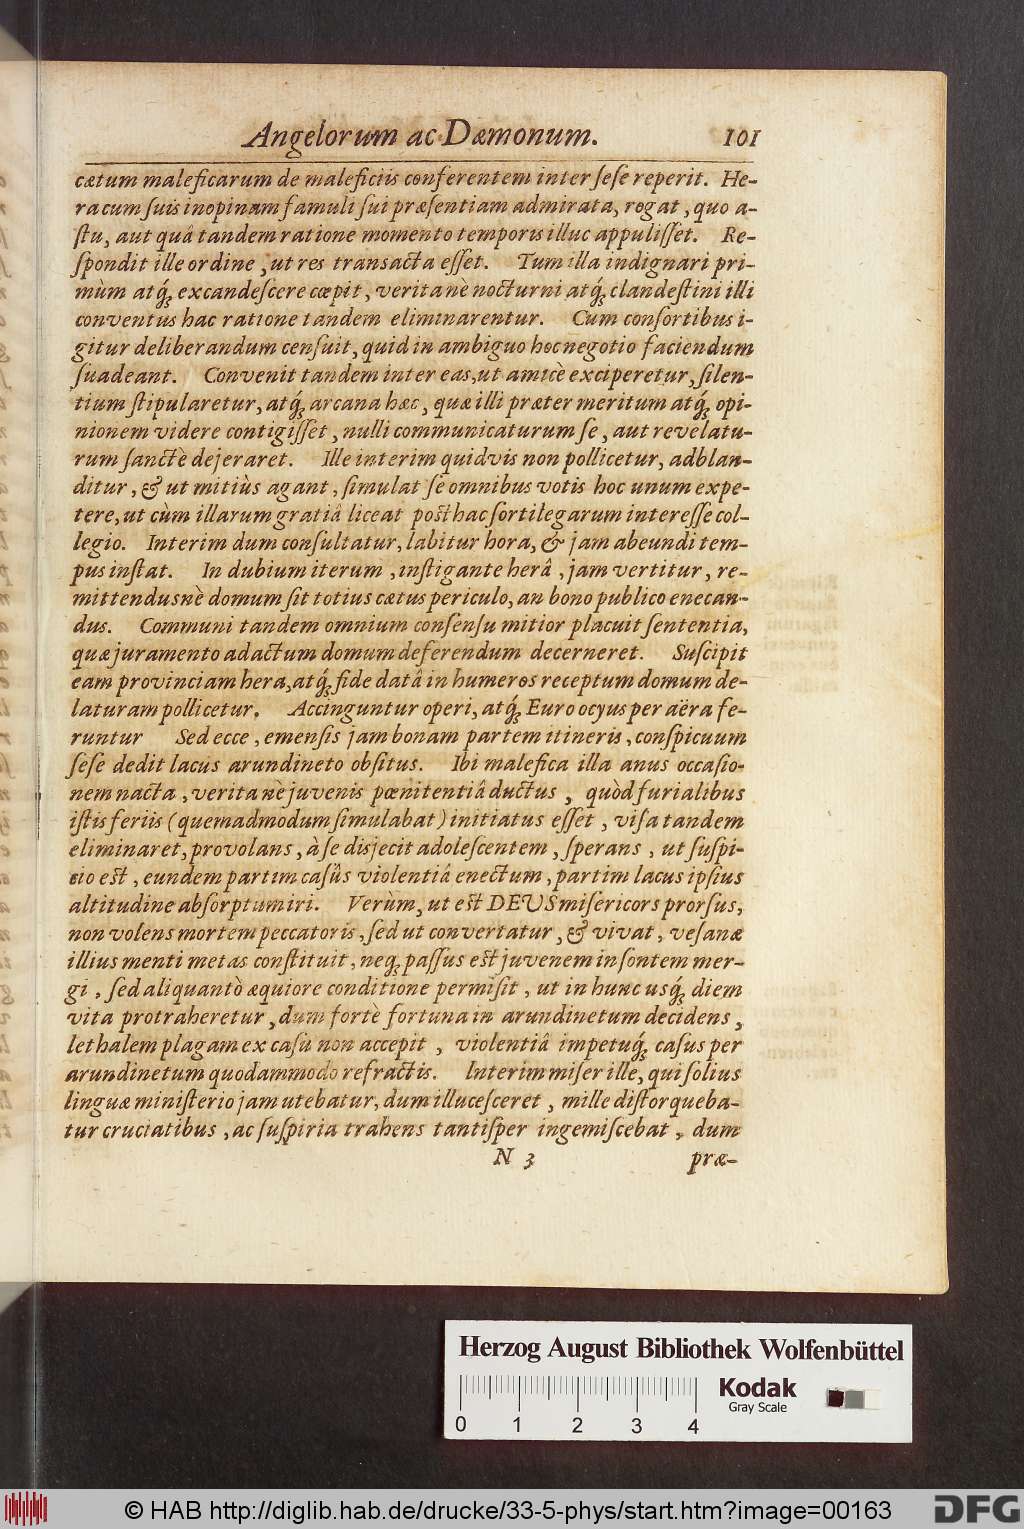 Angelorum ac Dæmonum. 101
cætum maleficarum de maleficiis conferentem inter ſeſe reperit. He-
ra cum ſuis inopinam famuli ſui præſentiam admirata, rogat, quo a-
ſtu, aut quâ tandem ratione momento temporis illuc appuliſſet. Re-
ſpondit ille ordine, ut res transacta eſſet. Tum illa indignari pri-
mùm atq́; excandeſcere cœpit, veritanè nocturni atq́; clandeſtini illi
conventus hac ratione tandem eliminarentur. Cum conſortibus i-
gitur deliberandum cenſuit, quid in ambiguo hoc negotio faciendum
ſuadeant. Convenit tandem inter eas, ut amicè exciperetur, ſilen-
tium ſtipularetur, atq́; arcana hæc, quæ illi præter meritum atq́; opi-
nionem videre contigiſſet, nulli communicaturum ſe, aut revelatu-
rum ſanctè dejeraret. Ille interim quidvis non pollicetur, adblan-
ditur, & ut mitiùs agant, ſimulat ſe omnibus votis hoc unum expe-
tere, ut cùm illarum gratiâ liceat posthac ſortilegarum intereſſe col-
legio. Interim dum conſultatur, labitur hora, & jam abeundi tem-
pus inſtat. In dubium iterum, inſtigante herâ, jam vertitur, re-
mittendusnè domum ſit totius cætus periculo, an bono publico enecan-
dus. Communi tandem omnium conſenſu mitior placuit ſententia,
quæ juramento adactum domum deferendum decerneret. Suſcipit
eam provinciam hera, atq́; fide datâ in humeros receptum domum de-
laturam pollicetur. Accinguntur operi, atq́; Euro ocyus per aëra fe-
runtur Sed ecce, emenſis jam bonam partem itineris, conſpicuum
ſeſe dedit lacus arundineto obſitus. Ibi malefica illa anus occaſio-
nem nacta, veritanè juvenis pœnitentiâ ductus, quòd furialibus
iſtis feriis (quemadmodum ſimulabat) initiatus eſſet, viſa tandem
eliminaret, provolans, à ſe disjecit adoleſcentem, ſperans, ut ſuſpi-
cio est, eundem partim caſûs violentiâ enectum, partim lacus ipſius
altitudine abſorptum iri. Verùm, ut est DEUS miſericors prorſus,
non volens mortem peccatoris, ſed ut convertatur, & vivat, veſanæ
illius menti metas conſtituit, neq́; paſſus est juvenem inſontem mer-
gi, ſed aliquantò æquiore conditione permiſit, ut in hunc usq́; diem
vita protraheretur, dum fortè fortuna in arundinetum decidens,
lethalem plagam ex caſu non accepit, violentiâ impetuq́; caſus per
arundinetum quodammodo refractis. Interim miſer ille, qui ſolius
linguæ miniſterio jam utebatur, dum illuceſceret, mille diſtorqueba-
tur cruciatibus, ac ſuſpiria trahens tantiſper ingemiſcebat, dum
N 3 præ-
Herzog August Bibliothek Wolfenbüttel
Kodak
Gray Scale
0 1 2 3 4
© HAB http://diglib.hab.de/drucke/33-5-phys/start.htm?image=00163
DFG